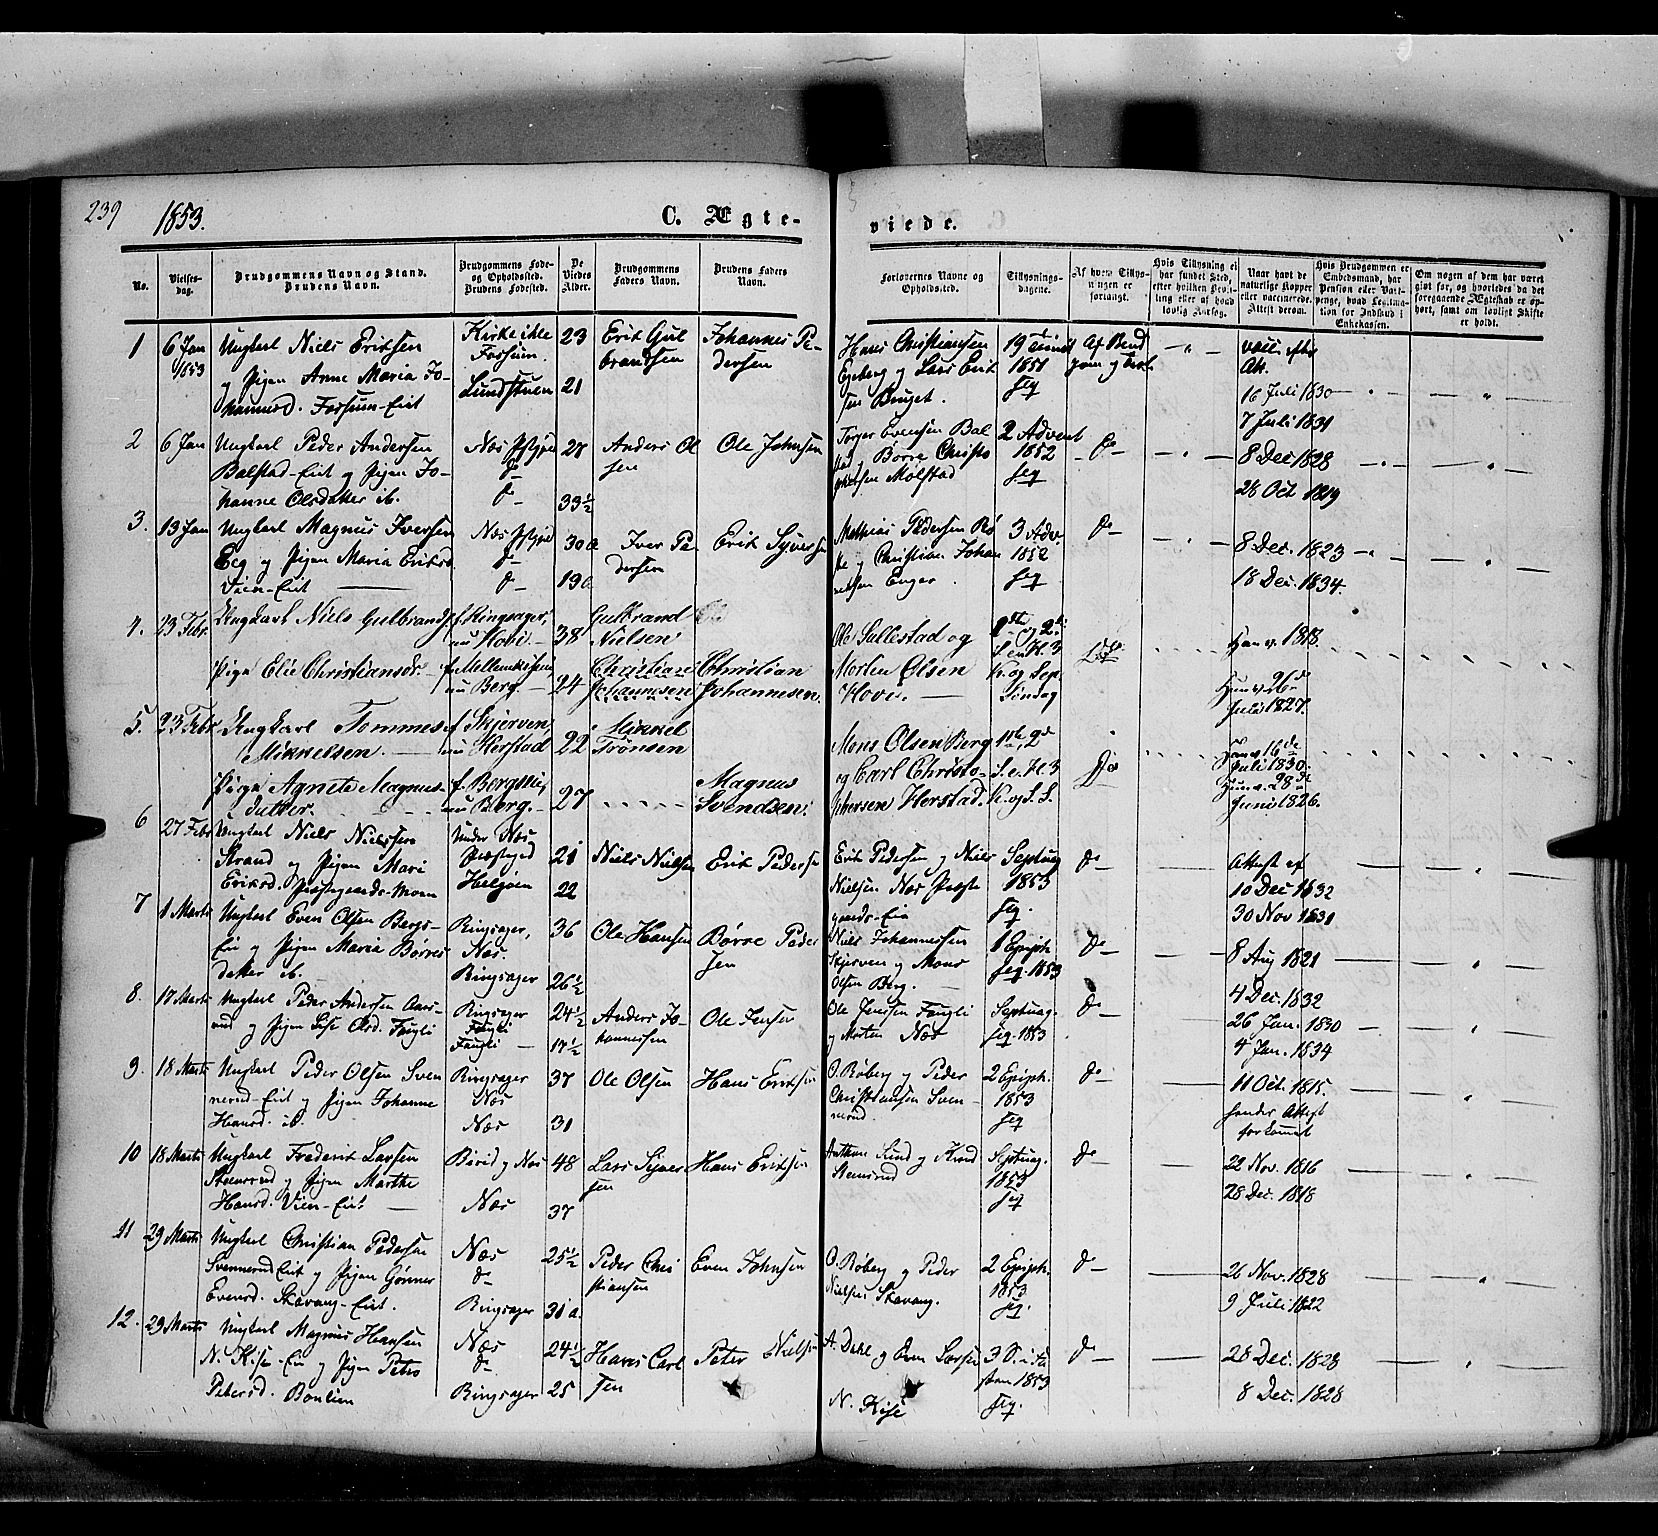 239
1853.
C. Ægte-
viede.
No.
Vielses-
dag.
Brudgommens Navn og Stand.
Brudens Navn.
Brudgommens Føde-
og Opholdssted.
Brudens Fødested.
De
Viedes
Alder.
Brudgommens
Faders Navn.
Brudens Faders
Navn.
Forlovernes Navne og
Opholdssted.
Tillysnings-
dagene.
Af hvem Tillys-
ningen er
forlangt.
Hvis Tillysning ei
har fundet Sted,
efter hvilken Bevil-
ling eller af hvad
lovlig Aarsag.
Naar havt de
naturlige Kopper
eller vaccinerede.
Attest derom.
Hvis Brudgommen er
Embedsmand, har
Pension eller Vart-
penge, hvad Legitima-
tion for Indskud i
Enkekassen.
Om nogen af dem har været
gift før, og hvorledes da det
foregaaende Ægteskab er op-
hørt, samt om lovligt Skifte
er holdt.
1 6 Jan 1853
Ungkarl Niels Eriksen
og Pigen Anne Maria Jo-
hannesd. Fossum-Eiet
Fossum.
Lundstuen
23
21
Erik Gul
brandsen
Johannes Pe-
dersen
Hans Christiansen
Egeberg og Lars Erik
sen
19
1851
Af Brud
gom
vacc. efter
Att.
16 Juli 1830
7 Juli 1831
2 6 Jan
Ungkarl Peder Andersen
Balstad-Eiet og Pigen Jo-
hanne Olsdatter ib.
Næs
do
28
33½
Anders Ol
sen
Ole Johnsen
Torger Evensen Bal
stad og Børre Christo
phersen Molstad
2 Advent
1852
do
8 Dec 1828
28 Oct 1819
3. 13 Jan
Ungkarl Magnus Iversen
Eeg og Pigen Maria Eriksd.
Vien-Eiet
Næs
do
30
19
Iver Pe
dersen
Erik Syversen
Mathias Pedersen
og Christian Johan
nessen Enger.
3 Adv.
1852
do
8 Dec. 1823
18 Dec. 1834.
4. 23 Febr.
Ungkarl Niels Gulbrands
f. Ringsager,
nu Hovi.
38
Gulbrand
Nielsen
Pige Elie Christiansdr.
nu Berg.
24
Christian
Johannesen
Christian
Johannesen.
Ole Sallestad og
Morten Olsen
Hovi.
K. og Sep.
Søndag
Han v. 1818.
Hun v. 26de
Juli 1827.
5. 23 Febr.
Ungkarl Tommes
Mikkelsen.
f. Skjerven,
nu Herstad
22
Mikkel
Trønsen
Pige Agnete Magnus-
datter.
nu Berg.
27
Magnus
Svendsen.
Mons Olsen Berg
og Carl Christo-
phersen Herstad.
Do
Han v. 16de
Juli 1830.
Hun v. 28de
Juni 1826.
6 27 Febr
Ungkarl Niels Nielssen
Strand og Pigen Mari
Eriksd. Præstegaards-Moen
Under Næs
Præstegjeld
Helgøen
21
22
Niels Nielsen
Erik Pedersen
Erik Pedersen og Niels
Nielsen Næs Præste
gaards-Eie
Septuag
1853
do
Attest af
10 Dec 1832
30 Nov 1831
7 1 Marts
Ungkarl Even Olsen Bergs-
Eie og Pigen Maria Børres
datter ib.
Ringsager,
Næs.
Ringsager
36
26½
Ole Hansen
Børre Peder
sen
Niels Johannessen
Skjerven og Mons
Olsen Berg.
1 Epiph.
1853
do
8 Aug 1821
4 Dec. 1832
8. 17 Marts
Ungkarl Peder Andersen
og Pigen Lise Olsd. Fangli
Ringsager
Fangli
Fangli
24½
17½
Anders Jo-
hannessen
Ole Jensen
Ole Jenssen Fangli
og Morten Næs
Septuag.
1853
do
26 Jan. 1830
4 Jan. 1834
9. 18 Marts
Ungkarl Peder Olsen Sven
nerud-Eiet og Pigen Johanne
Hansd. ib.
Ringsager
Næs
Næs
37
31
Ole Olsen
Hans Eriksen
O. Røberg og Peder
Christiansen Sven-
nerud.
2 Epiph.
1853
do
11 Oct. 1815.
hendes Attest
forkommet
10 18 Marts
Ungkarl Frederik Larsen
Steensrud og Pigen Marthe
Hansd. Vien-Eiet
Birid og Næs
Næs
48
37
Lars Syver
sen
Hans Eriksen
Steensrud
Septuag.
1853
do
22 Nov. 1816
28 Dec. 1818
11 29 Marts
Ungkarl Christian Pedersen
Svennerud Eiet og Pigen Gønner
Evensd. Skavang-Eiet.
Næs
do
Ringsager
25½
31
Peder Chri
stiansen
Even Johnsen
O. Røberg og Peder
Nielsen Skavang.
2 Epiph.
1853
do
26 Nov. 1828
9 Juli 1822
12. 29 Marts
Ungkarl Magnus Hansen
N. Kise-Eie og Pigen Petro
Petersd. Bonlien
Næs
do
Ringsager
24½
25
Hans Carl
sen
Peter Nielsen
A. Dahl og Even Larsen
N. Kise
3 S. i Fa
sten 1853
do
28 Dec. 1828
8 Dec. 1828